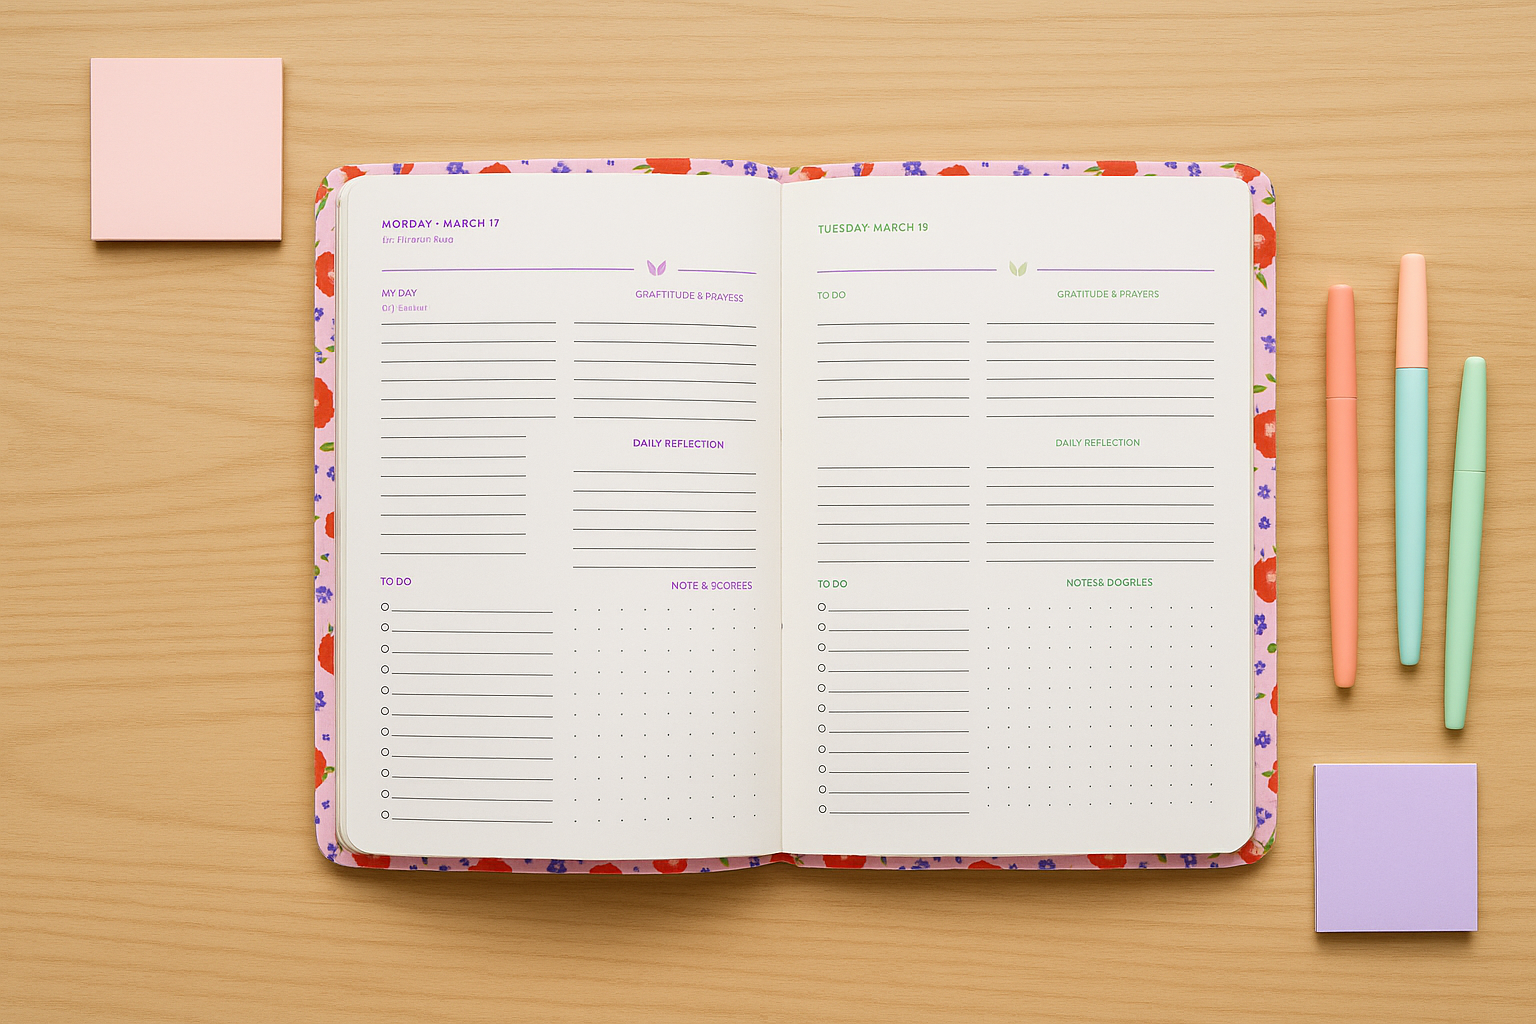 MORDAY · MARCH 17
MY DAY
GRAFTITUDE & PRAYESS
DAILY REFLECTION
TO DO
NOTE & 9COREES
TUESDAY· MARCH 19
TO DO
GRATITUDE & PRAYERS
DAILY REFLECTION
TO DO
NOTES& DOGRLES